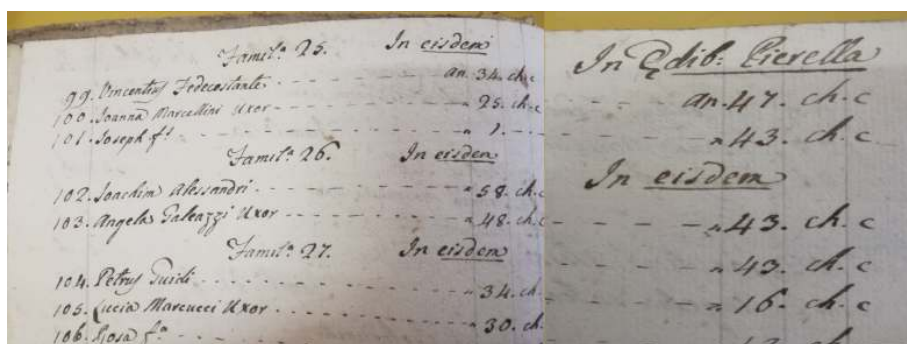 Famil.ª 25. In eisdem
99. Vincentius Fedecostante an. 34. ch. c
100. Joanna Marcellini Uxor " 25. ch. c
101. Joseph f.s " 1.
Famil.ª 26. In eisdem
102. Joachim Alessandri " 58. ch. c
103. Angela Galeazzi Uxor " 48. ch. c
Famil.ª 27. In eisdem
104. Petrus Guidi " 34. ch.
105. Lucia Marcucci Uxor " 30. ch.
106. Rosa f.ª
In Ędib: Pierella
an. 47. ch. c
" 43. ch. c
In eisdem
" 43. ch. c
" 43. ch. c
" 16. ch. c